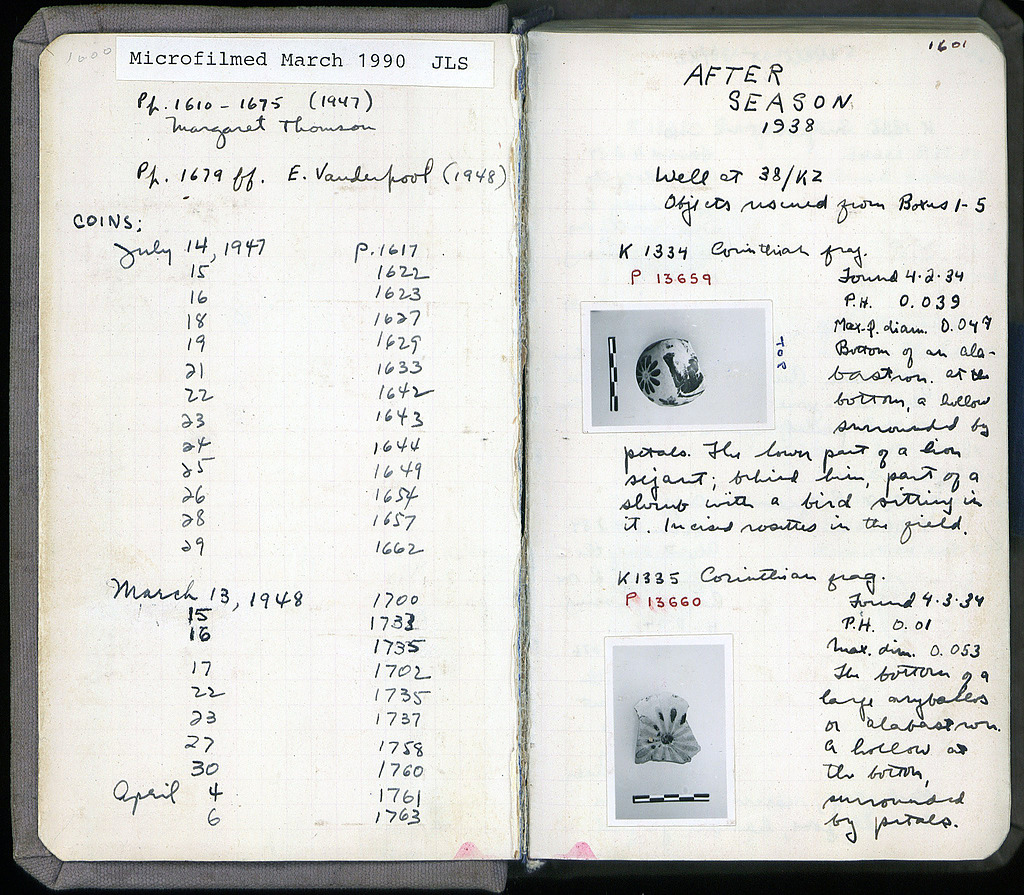 1600
Microfilmed March 1990 JLS
Pp. 1610 - 1675 (1947)
Margaret Thomson
Pp. 1679 ff. E. Vanderpool (1948)
COINS:
July 14, 1947 p. 1617
15 1622
16 1623
18 1627
19 1629
21 1633
22 1642
23 1643
24 1644
25 1649
26 1654
28 1657
29 1662
March 13, 1948 1700
15 1733
16 1735
17 1702
22 1735
23 1737
27 1758
30 1760
April 4 1761
6 1763
1601
AFTER
SEASON
1938
Well at 38/KZ
Objects rescued from Boxes 1-5
K 1334 Corinthian frag.
P 13659
Found 4·2·34
P.H. 0.039
Max. p. diam. 0.047
Bottom of an ala-
bastron. At the
bottom, a hollow
surrounded by
petals. The lower part of a lion
sejant; behind him, part of a
shrub with a bird sitting in
it. Incised rosettes in the field.
K 1335 Corinthian frag.
P 13660
Found 4·3·34
P.H. 0.01
Max. dim. 0.053
The bottom of a
large aryballos
or alabastron.
A hollow at
the bottom,
surrounded
by petals.